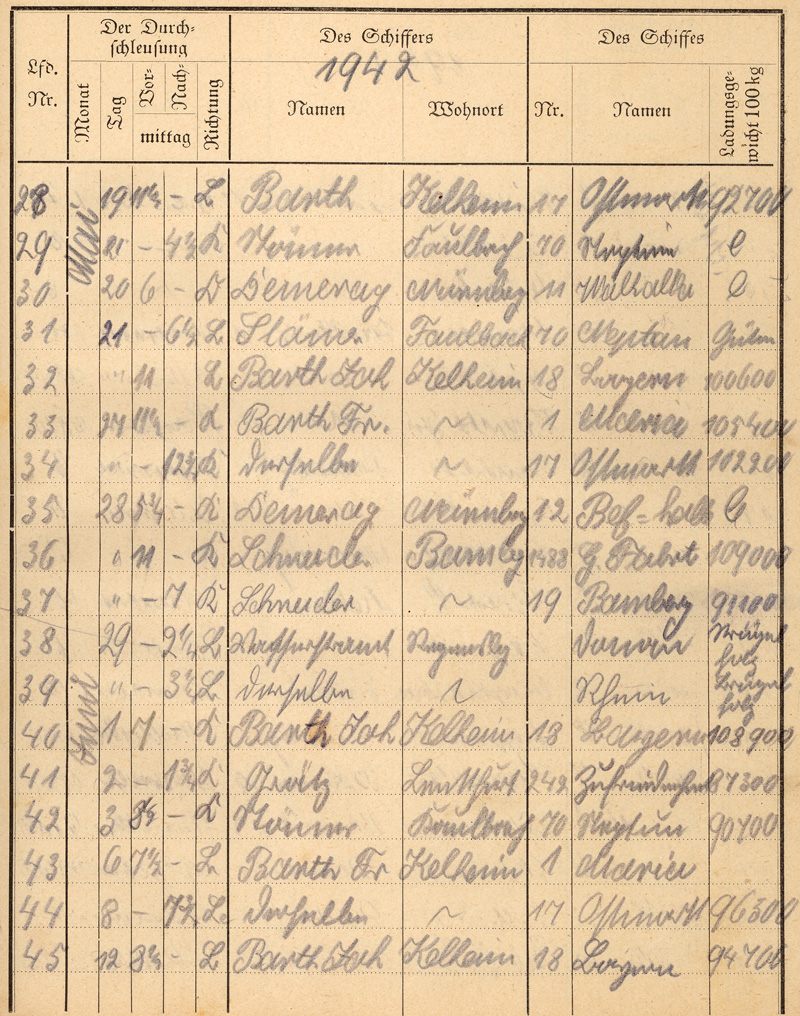 Lfd. Nr.
Der Durch-
schleusung
Monat
Tag
Vor-
Nach-
mittag
Richtung
Des Schiffers
1942
Namen
Wohnort
Des Schiffes
Nr.
Namen
Ladungsge-
wicht 100 kg
Mai
28 19 11½ - L Barth Kelheim 17 Ostmark 92700
29 21 - 4½ K Faulbach 70 Neptun
30 20 6 - Demerag Nürnberg 11 Walhalla
31 21 - 6½ L Faulbach 70 Neptun
32 " 11 L Barth Joh Kelheim 18 Bayern 100600
33 27 11½ - K Barth Fr. ~ 1 Maria 105400
34 - 12½ K derselbe ~ 17 Ostmark 102200
35 28 5¼ - K Demerag Nürnberg 12
36 " 11 - K Schneider Bambg 109000
37 " - 7 K Schneider ~ 19 Bamberg 91100
38 29 - 2¼ L Wasserstr.amt Regensbg Donau Prügel
holz
39 " - 3½ L derselbe ~ Rhein Prügel
holz
Juni
40 1 7 - K Barth Joh Kelheim 18 Bayern 108900
41 2 - 1¾ K 249 87300
42 3 8½ - K Faulbach 70 Neptun 90700
43 6 7½ - L Barth Fr Kelheim 1 Maria
44 8 - 7½ L derselbe ~ 17 Ostmark 96300
45 12 8½ - L Barth Joh Kelheim 18 Bayern 94700